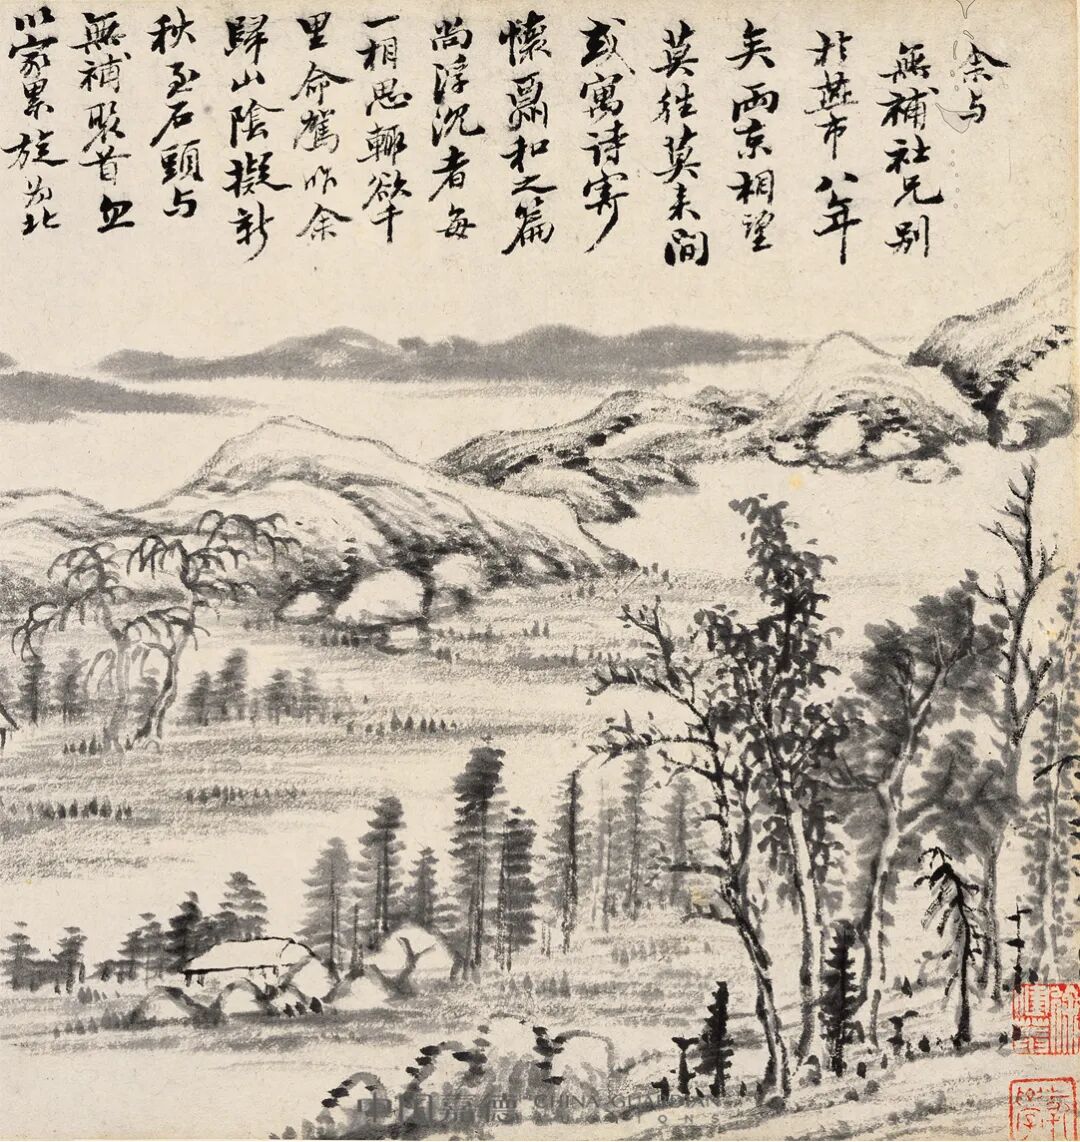 余与
無補社兄别
於燕市八年
矣兩京相望
莫往莫来間
或寓诗寄
懷屬和之篇
尚浮沉者每
一相思輙欲千
里命駕昨余
歸山陰擬新
秋至石頭与
無補聚首且
以家累旋为北
中国嘉德 CHINA GUARDIAN